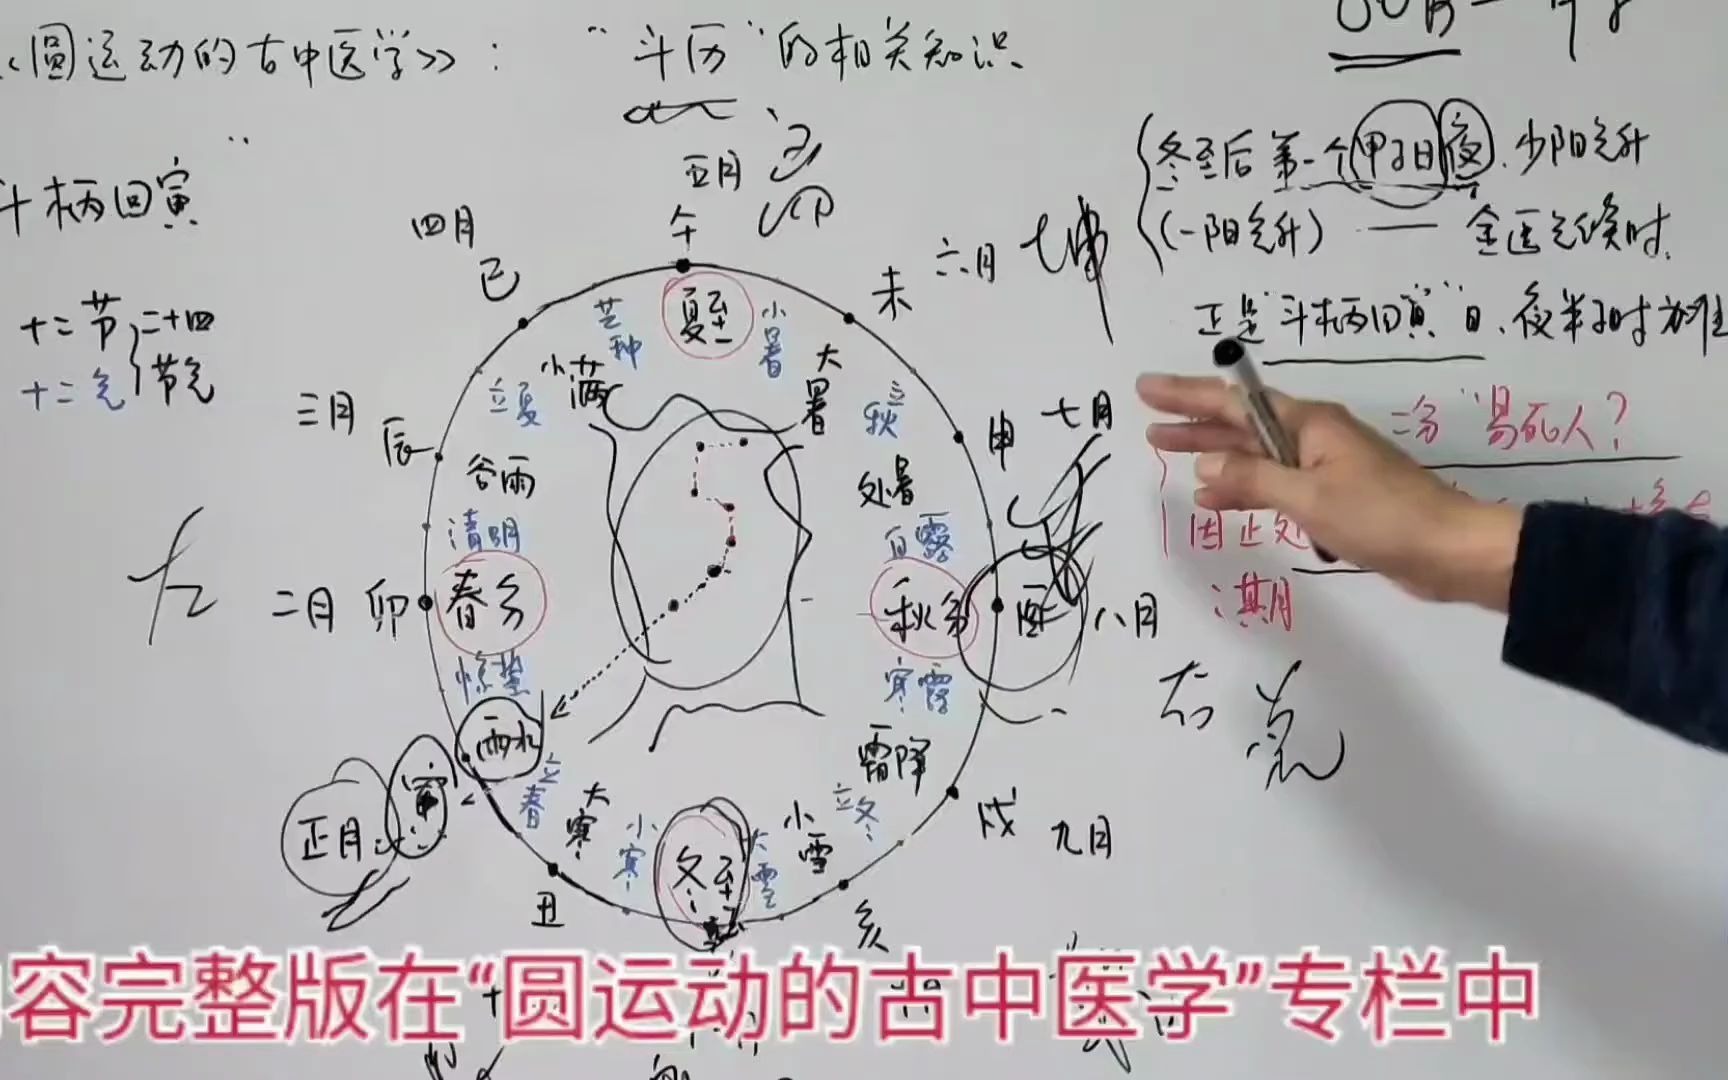 《圆运动的古中医学》："斗历"的相关知识
斗柄回寅"
十二节
十二气
二十四
节气
五月
午
四月
巳
六月
未
三月
辰
七月
申
二月
卯
八月
酉
正月
寅
九月
戌
丑
亥
夏至
芒种
小暑
小满
大暑
立夏
立秋
谷雨
处暑
清明
白露
春分
秋分
惊蛰
寒露
雨水
霜降
立春
立冬
大寒
小雪
小寒
大雪
冬至
左
右
冬至后第一个甲子日夜,少阳气升
(一阳气升)——金匮气候时.
正是"斗柄回寅"日,夜半子时为准
二分"易死人?
因正处
期月
容完整版在“圆运动的古中医学”专栏中